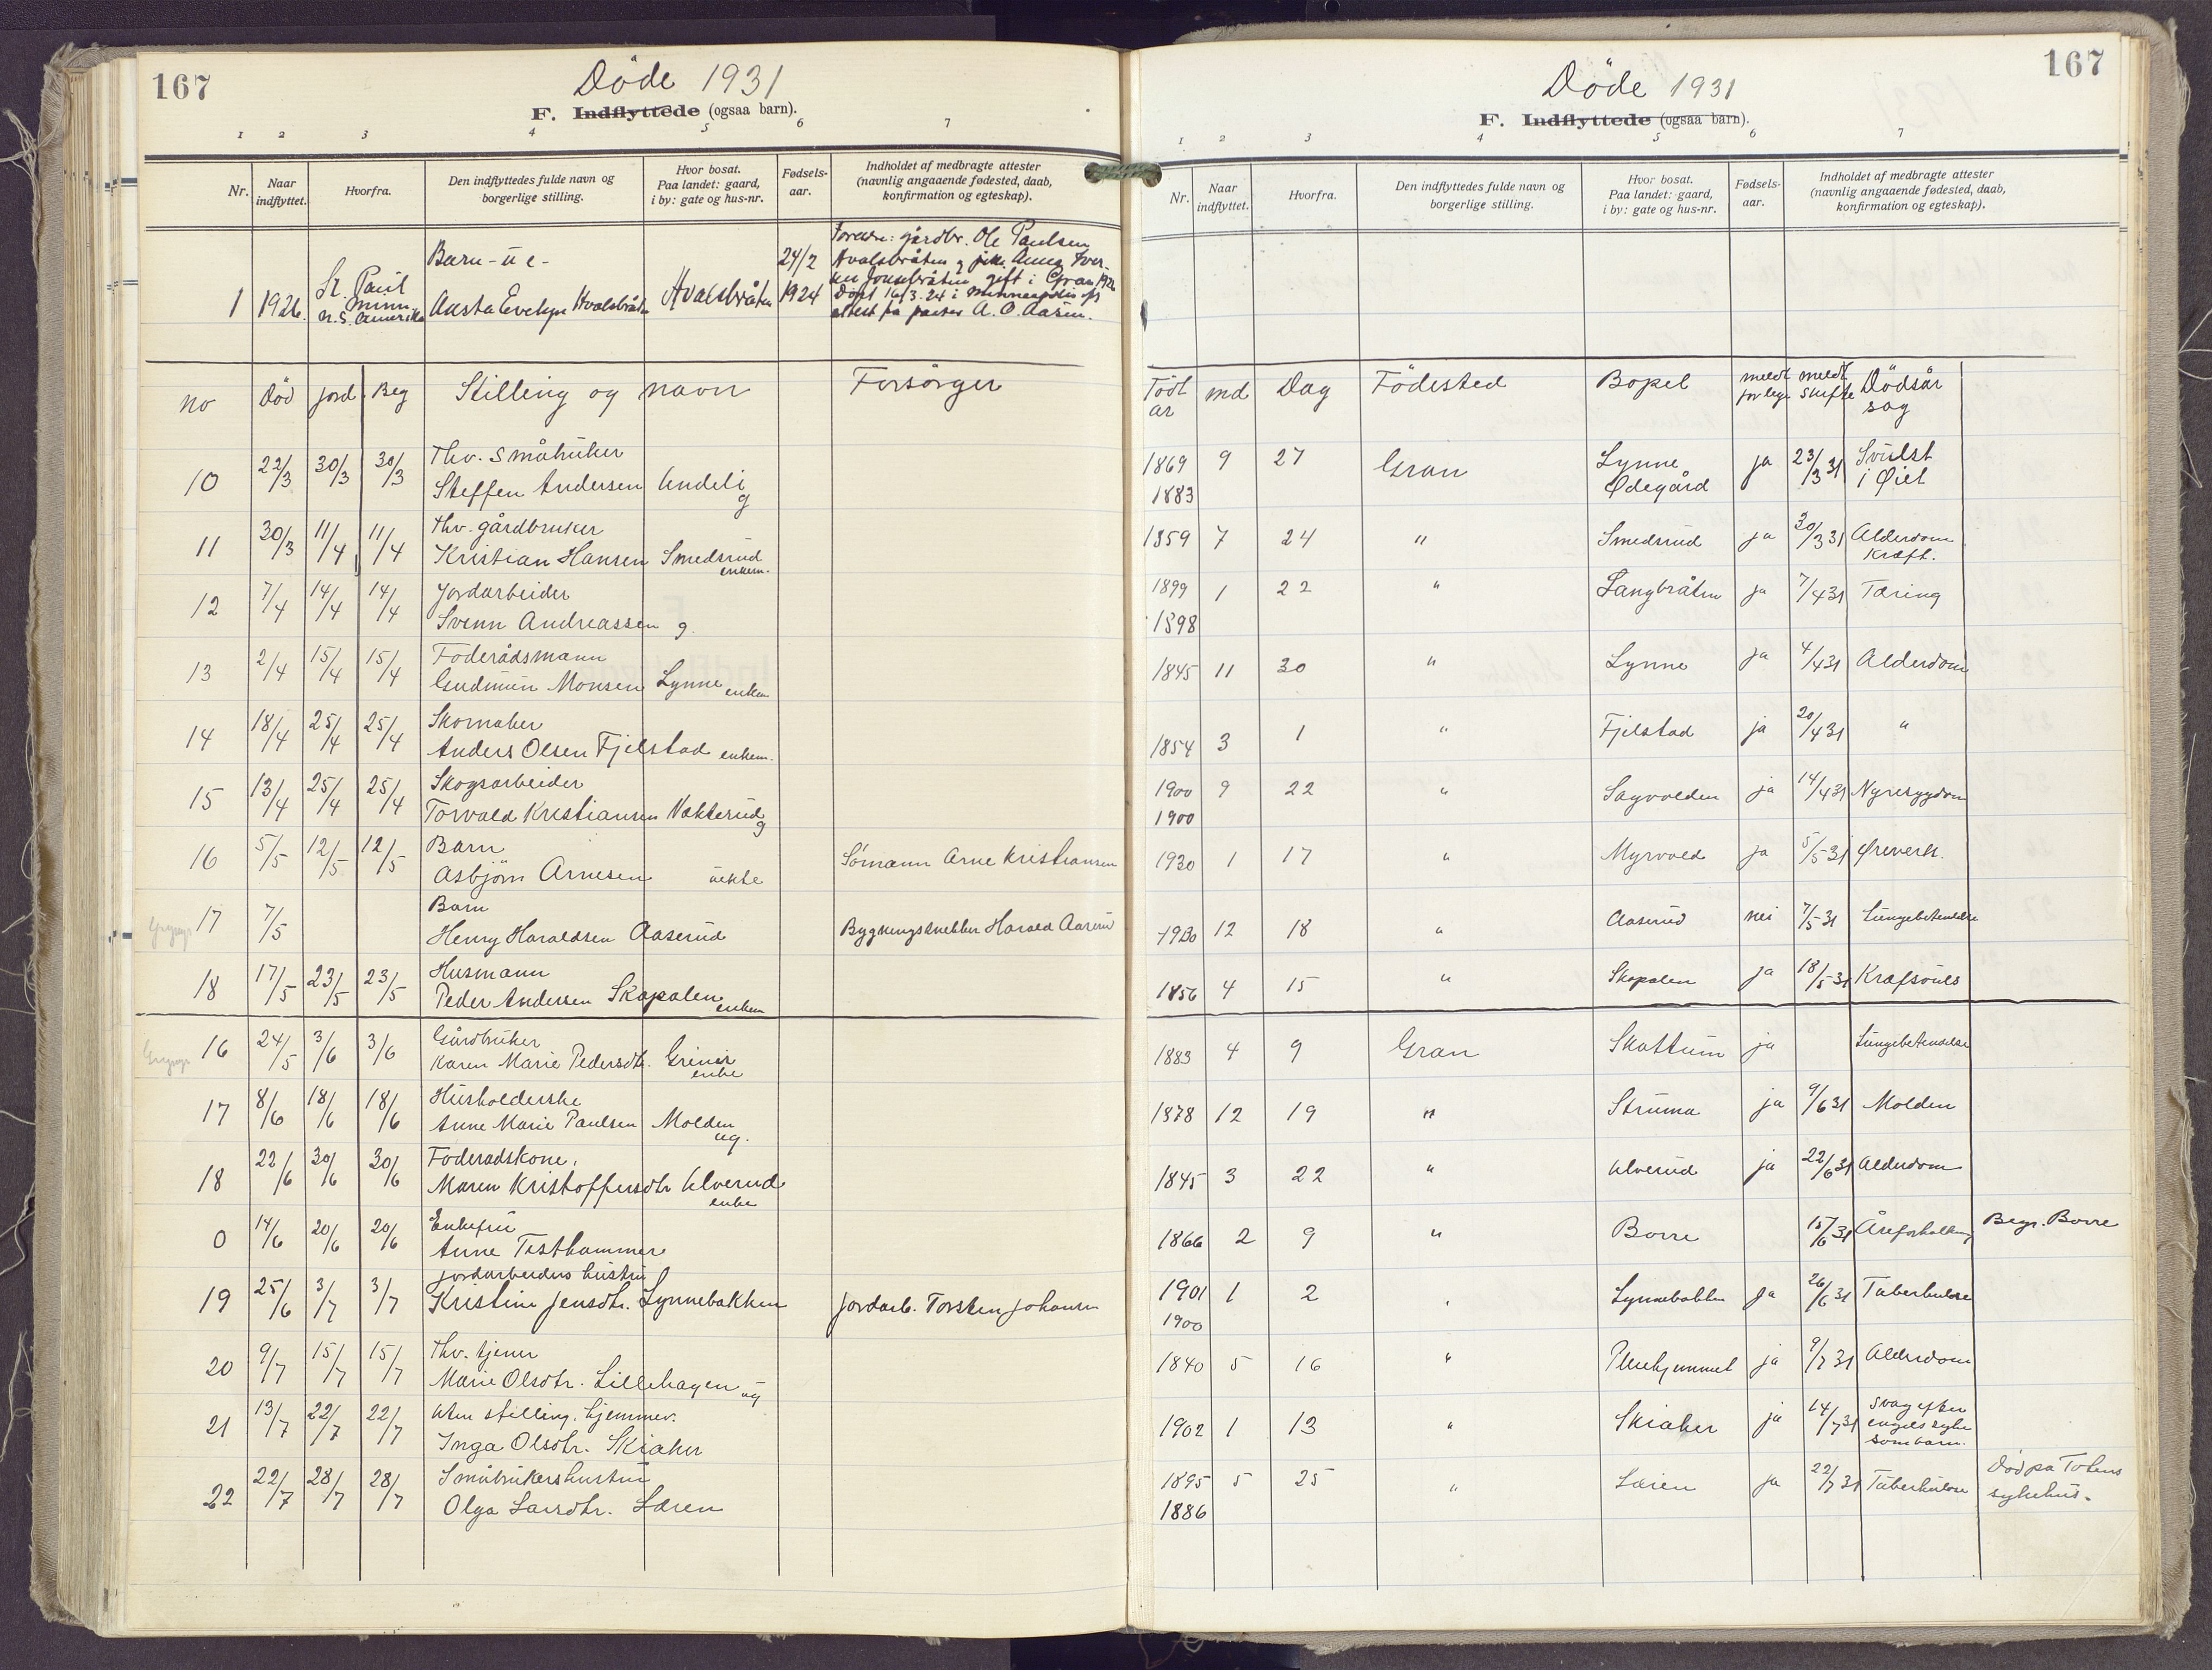 167
Döde 1931
F. Indflyttede (ogsaa barn).
1 2 3 4 5 6 7
Nr. Naar indflyttet. Hvorfra. Den indflyttedes fulde navn og borgerlige stilling. Hvor bosat. Paa landet: gaard, i by: gate og hus-nr. Fødsels-aar. Indholdet af medbragte attester (navnlig angaaende fødested, daab, konfirmation og egteskap).
Barn - u e -
1 1926. St. Paul Minn. N. S. Amerika Austa Evelyn Hvalsbråten Hvalsbråten 24/2 1924
Foreldre: gårdbr. Ole Paulsen
Hvalsbråten g pike Anna
gift i Gran 1926
Döpt 16/3.24 i Minneapolis
attest fra pastor A. O. Aasen.
no Död jord Beg Stilling og navn Forsörger
Thv. Småbruker
10 22/3 30/3 30/3 Steffen Andersen Undeli g
Thv. gårdbruker
11 30/3 11/4 11/4 Kristian Hansen Smedsrud enkem.
Jordarbeider
12 7/4 14/4 14/4 Svenn Andreassen g.
Föderådsmann
13 2/4 15/4 15/4 Gudmun Monsen Lynne enkem
Skomaker
14 18/4 25/4 25/4 Anders Olsen Fjelstad enkem.
Skogsarbeider
15 13/4 25/4 25/4 Torvald Kristiansen Vakterud g
Barn
16 5/5 12/5 12/5 Asbjörn Arnesen uekte Sömann Arne Kristiansen
Barn
17 7/5 Henry Haraldsen Aaserud Bygningssnekker Harald Aaserud
Husmann
18 17/5 23/5 23/5 Peder Andersen Skapalen enkem
Gårdbruker
16 24/5 3/6 3/6 Karen Marie Pedersdtr. Grinir enke
Husholderske
17 8/6 18/6 18/6 Anne Marie Paulsen Molden ug.
Föderadskone.
18 22/6 30/6 30/6 Maren Kristoffersdtr Ulverud enke
Enkefru
0 14/6 20/6 20/6 Anne Testhammer
Jordarbeiders hustru
19 25/6 3/7 3/7 Kristine Jensdtr. Lynnebakken Jordarb. Torsten Johansen
Thv. tjener
20 9/7 15/7 15/7 Marie Olsdtr. Lillehagen ug
Uten stilling. hjemmev.
21 13/7 22/7 22/7 Inga Olsdtr. Skiaker
Småbrukershustru
22 22/7 28/7 28/7 Olga Larsdtr. Løren
167
Döde 1931
F. Indflyttede (ogsaa barn).
1 2 3 4 5 6 7
Nr. Naar indflyttet. Hvorfra. Den indflyttedes fulde navn og borgerlige stilling. Hvor bosat. Paa landet: gaard, i by: gate og hus-nr. Fødsels-aar. Indholdet af medbragte attester (navnlig angaaende fødested, daab, konfirmation og egteskap).
Födt år md Dag Födested Bopel meldt for lege meldt skifte Dödsårsag
1869 9 27 Gran Lynne Ødegård ja 23/3 31 Svulst i Øiet
1883
1859 7 24 " Smedsrud ja 30/3 31 Alderdom Kræft.
1899 1 22 " Langbråten ja 7/4 31 Tæring
1898
1845 11 30 " Lynne ja 4/4 31 Alderdom
1854 3 1 " Fjelstad ja 20/4 31 "
1900 9 22 " Sagvolden ja 14/4 31 Nyresygdom
1900
1930 1 17 " Myrvold ja 5/5 31 Öreverk.
1930 12 18 " Aaserud nei 7/5 31 Lungebetendelse
1856 4 15 " Skapalen ja 18/5 31 Kræfsvuls
1883 4 9 Gran Skattum ja Lungebetendelse
1878 12 19 " Struma ja 9/6 31 Molden
1845 3 22 " Ulverud ja 22/6 31 Alderdom
1866 2 9 " Borre 15/6 31 Åreforkalkning Begr. Borre
1901 1 2 " Lynnebakken ja 26/6 31 Tuberkulose
1900
1840 5 16 " Pleiehjemmet ja 9/7 31 Alderdom
1902 1 13 " Skiaker ja 14/7 31 svag efter engelsk syke som barn.
1895 5 25 " Løren ja 22/7 31 Tuberkulose Död på Totens sykehus.
1886